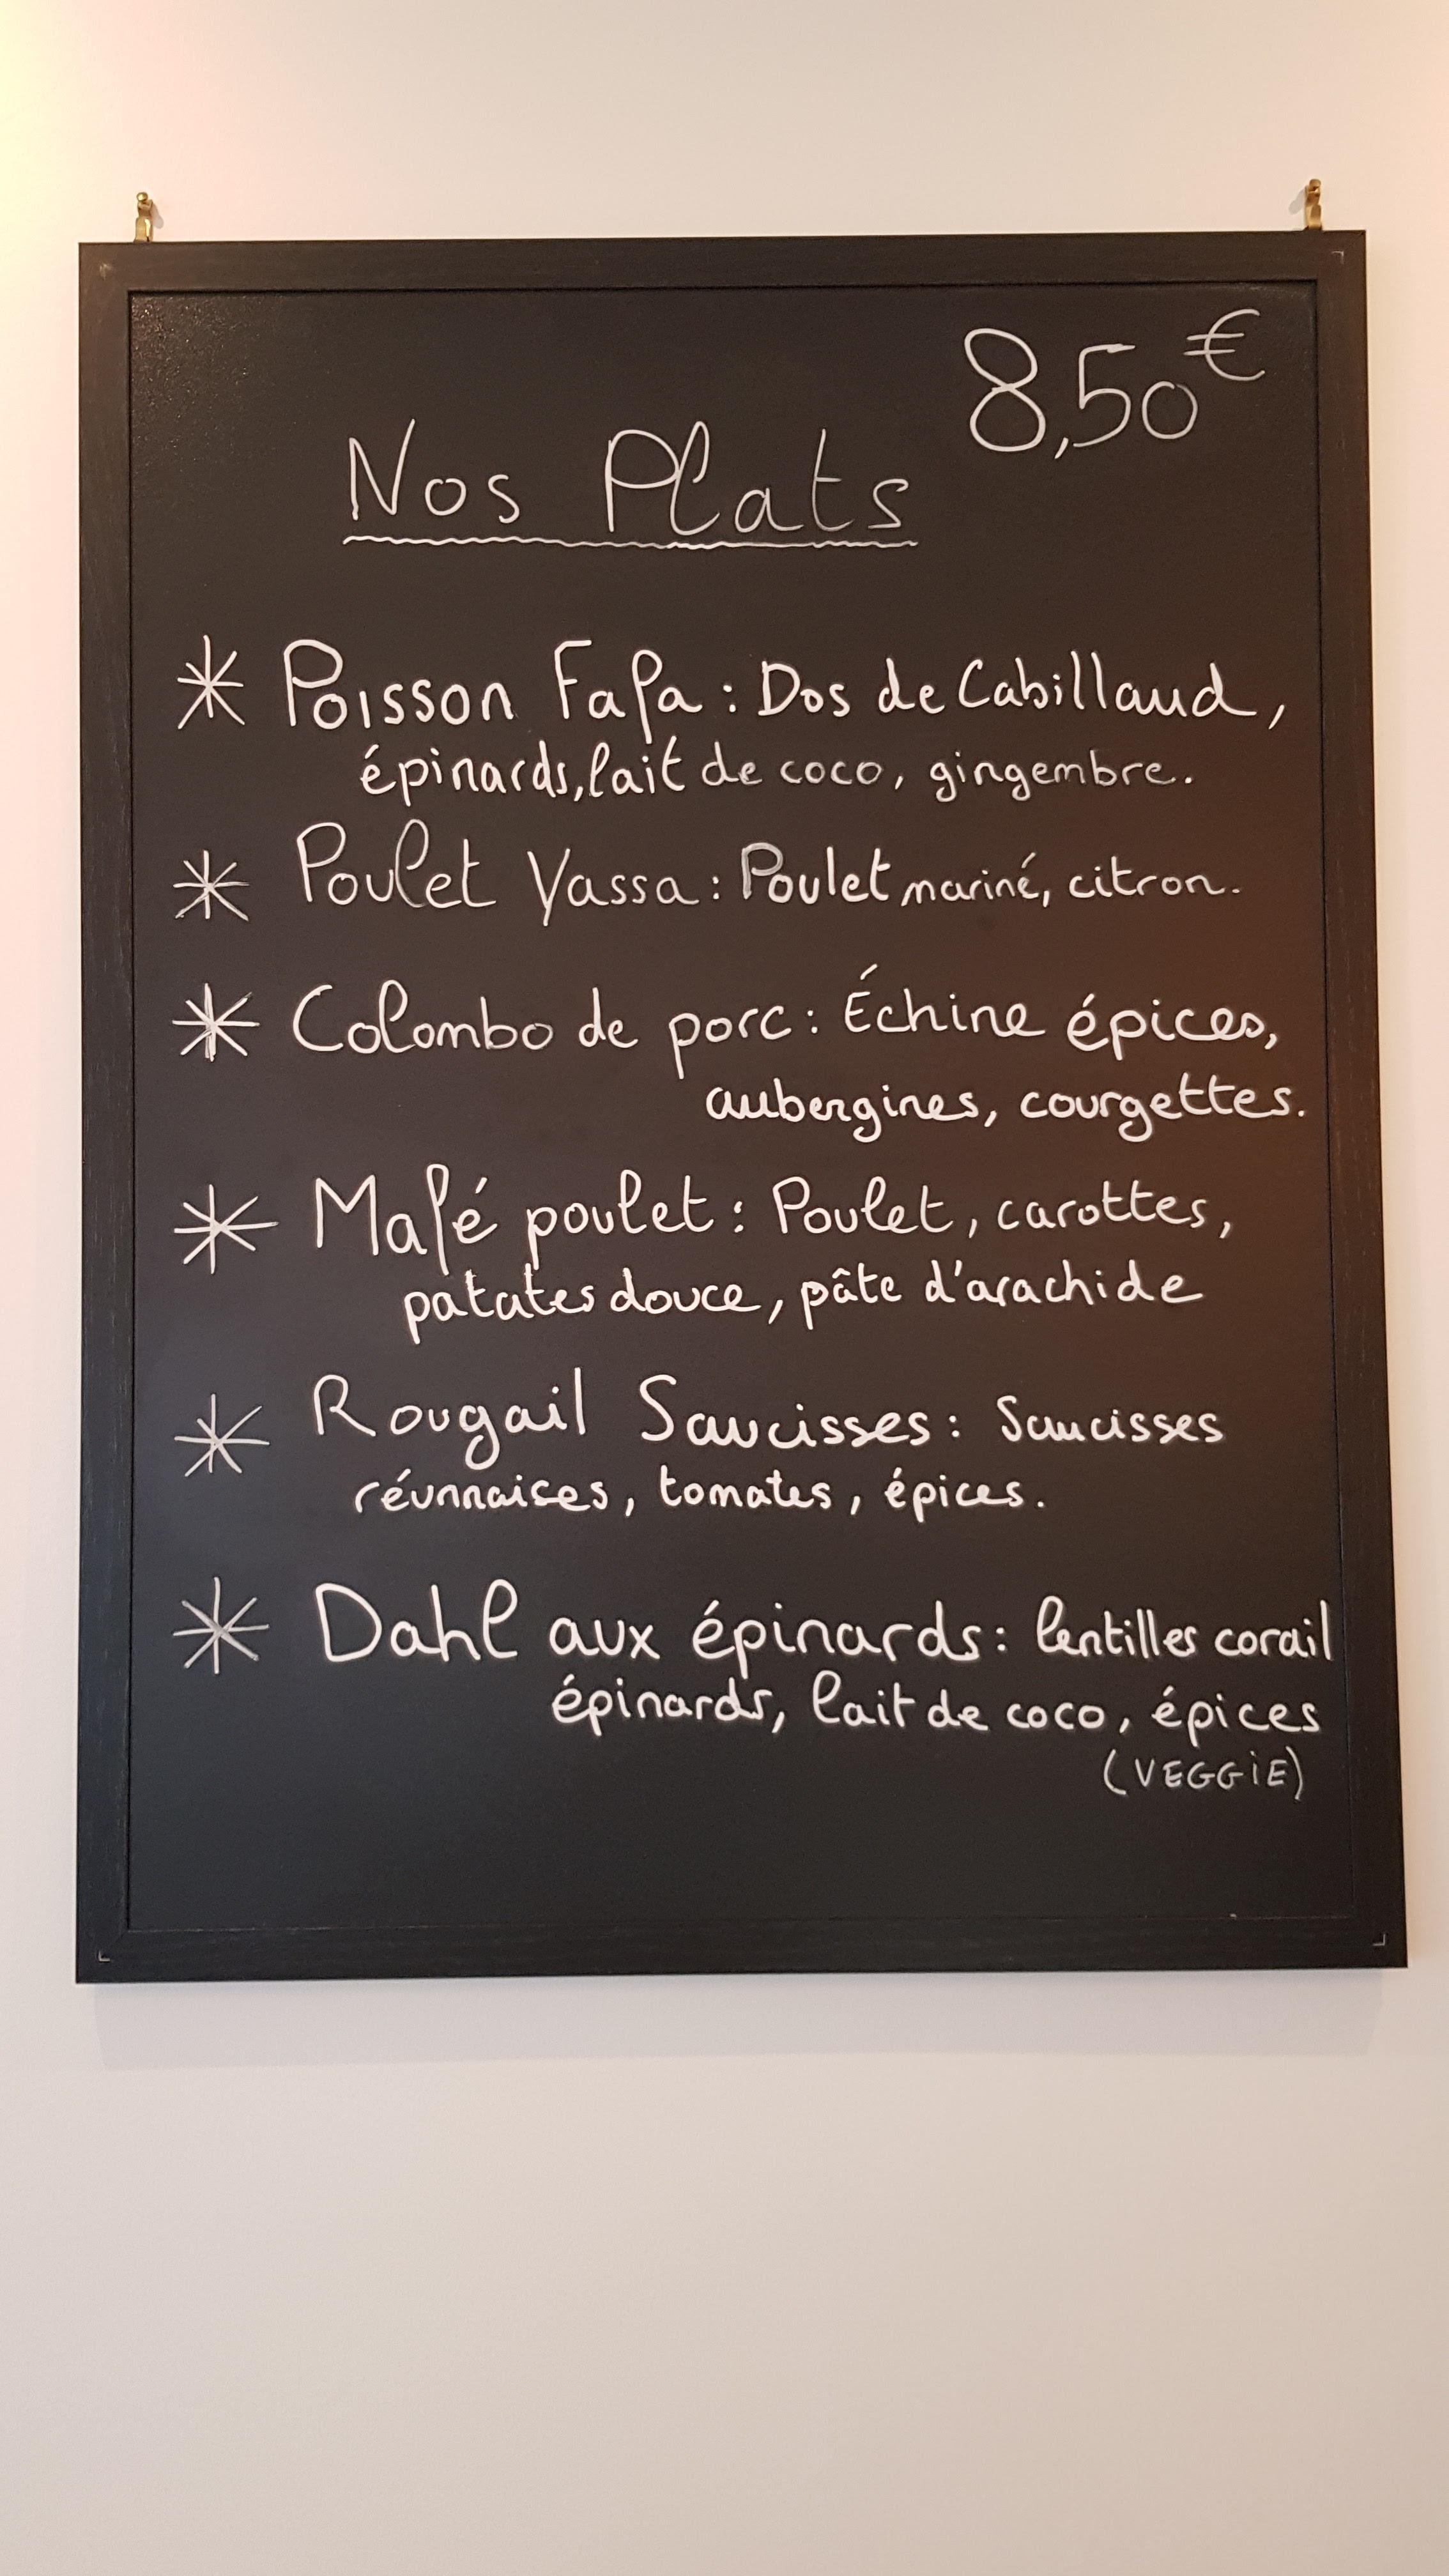 8,50€
Nos Plats
* Poisson Fafa : Dos de Cabillaud,
épinards, lait de coco, gingembre.
* Poulet Yassa : Poulet mariné, citron.
* Colombo de porc : Échine épices,
aubergines, courgettes.
* Mafé poulet : Poulet, carottes,
patates douce, pâte d'arachide
* Rougail Saucisses : Saucisses
réunnaises, tomates, épices.
* Dahl aux épinards : lentilles corail
épinards, lait de coco, épices
(VEGGiE)